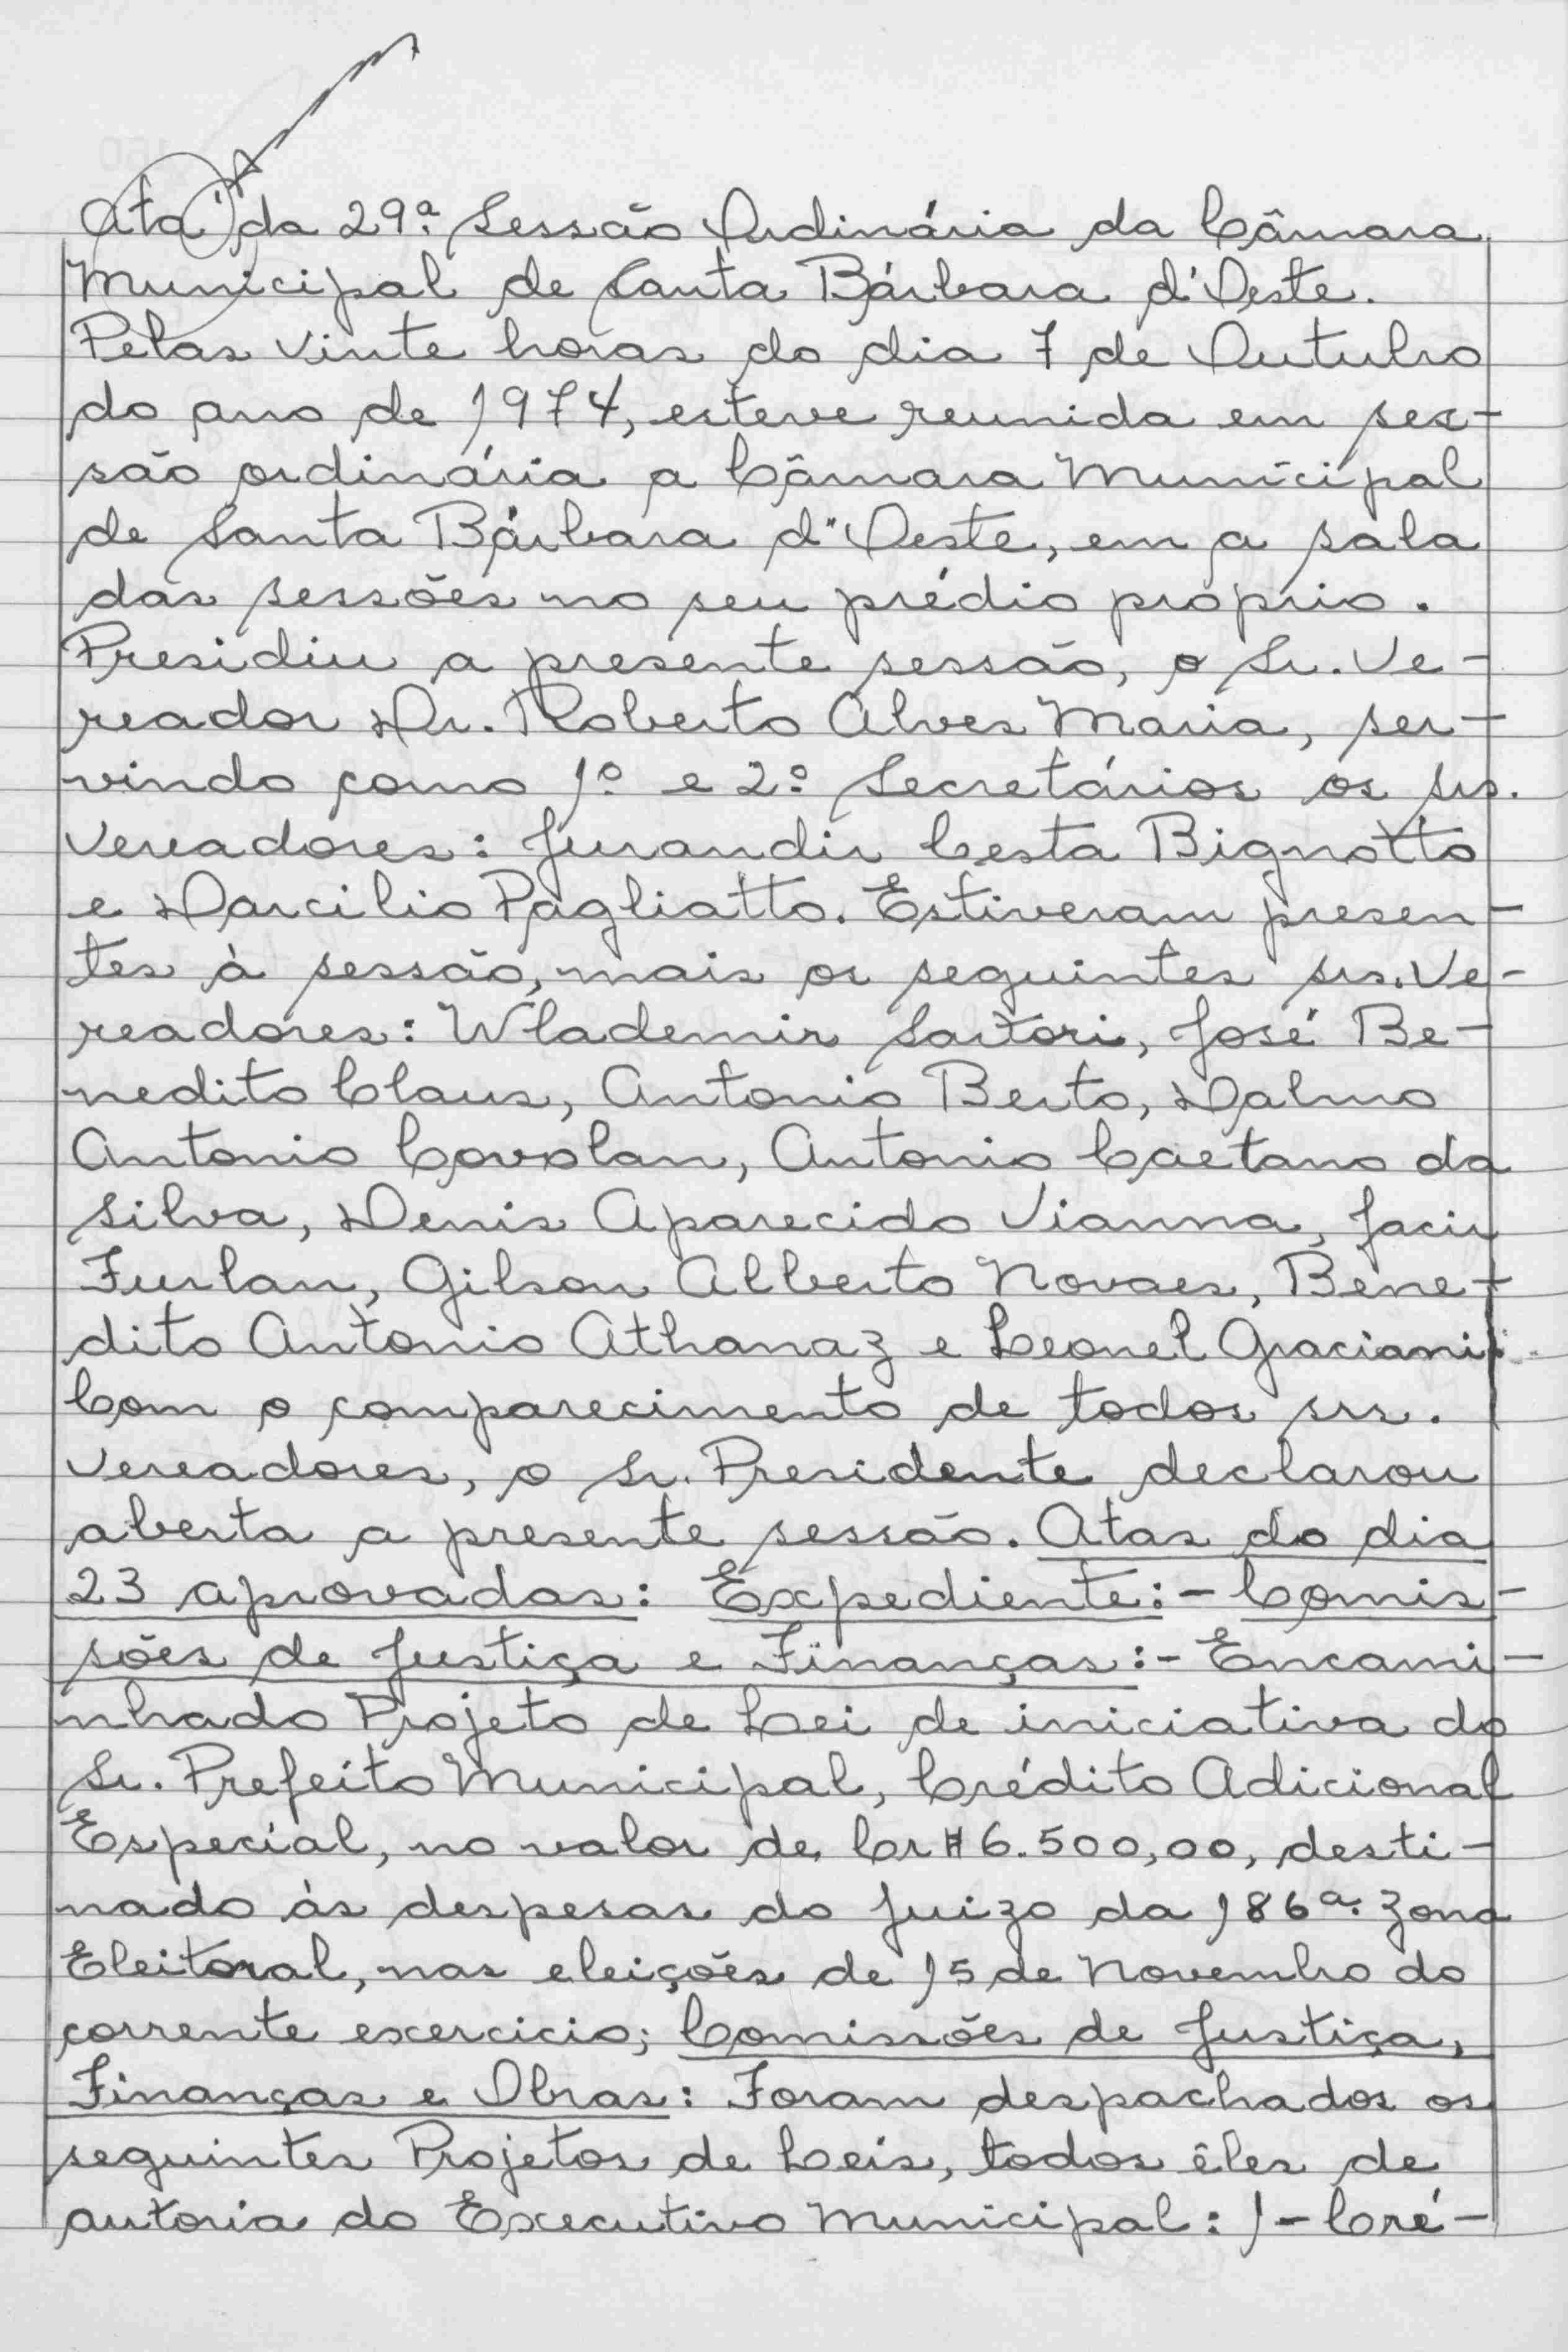 Ata da 29ª. Sessão Ordinária da Câmara
Municipal de Santa Bárbara d'Oeste.
Pelas vinte horas do dia 7 de Outubro
do ano de 1974, esteve reunida em ses-
são ordinária a Câmara Municipal
de Santa Bárbara d'Oeste, em a sala
das sessões no seu prédio próprio.
Presidiu a presente sessão, o Sr. Ve-
reador Dr. Roberto Alves Maria, ser-
vindo como 1º e 2º Secretários os srs.
Vereadores: Jurandir Cesta Bignotto
e Darcilio Pagliatto. Estiveram presen-
tes à sessão, mais os seguintes srs. Ve-
readores: Wlademir Sartori, José Be-
nedito Claus, Antonio Berto, Dalmo
Antonio Covolan, Antonio Caetano da
Silva, Denis Aparecido Vianna, Jacir
Furlan, Gilson Alberto Novaes, Bene-
dito Antonio Athanaz e Leonel Graciani.
Com o comparecimento de todos srs.
Vereadores, o Sr. Presidente declarou
aberta a presente sessão. Atas do dia
23 aprovadas: Expediente:- Comis-
sões de Justiça e Finanças:- Encami-
nhado Projeto de Lei de iniciativa do
Sr. Prefeito Municipal, Crédito Adicional
Especial, no valor de Cr$ 6.500,00, desti-
nado às despesas do Juizo da 186ª. Zona
Eleitoral, nas eleições de 15 de Novembro do
corrente exercicio; Comissões de Justiça,
Finanças e Obras: Foram despachados os
seguintes Projetos de Leis, todos êles de
autoria do Executivo Municipal: 1- Cré-